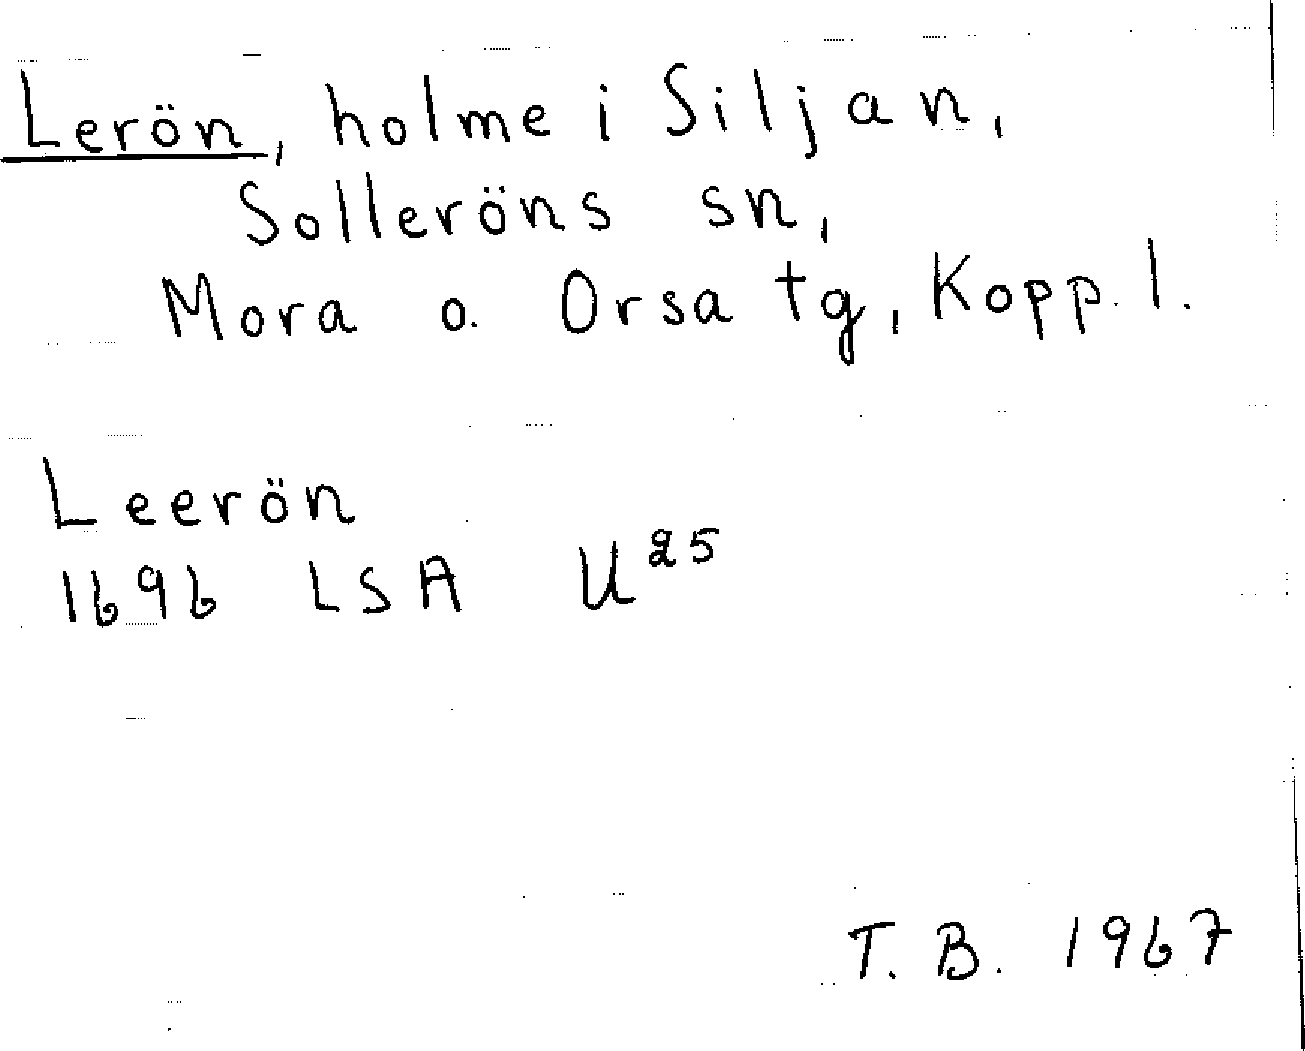 Lerön, holme i Siljan,
Solleröns sn,
Mora o. Orsa tg, Kopp. l.
Leerön
1696 LSA U²⁵
T. B. 1967